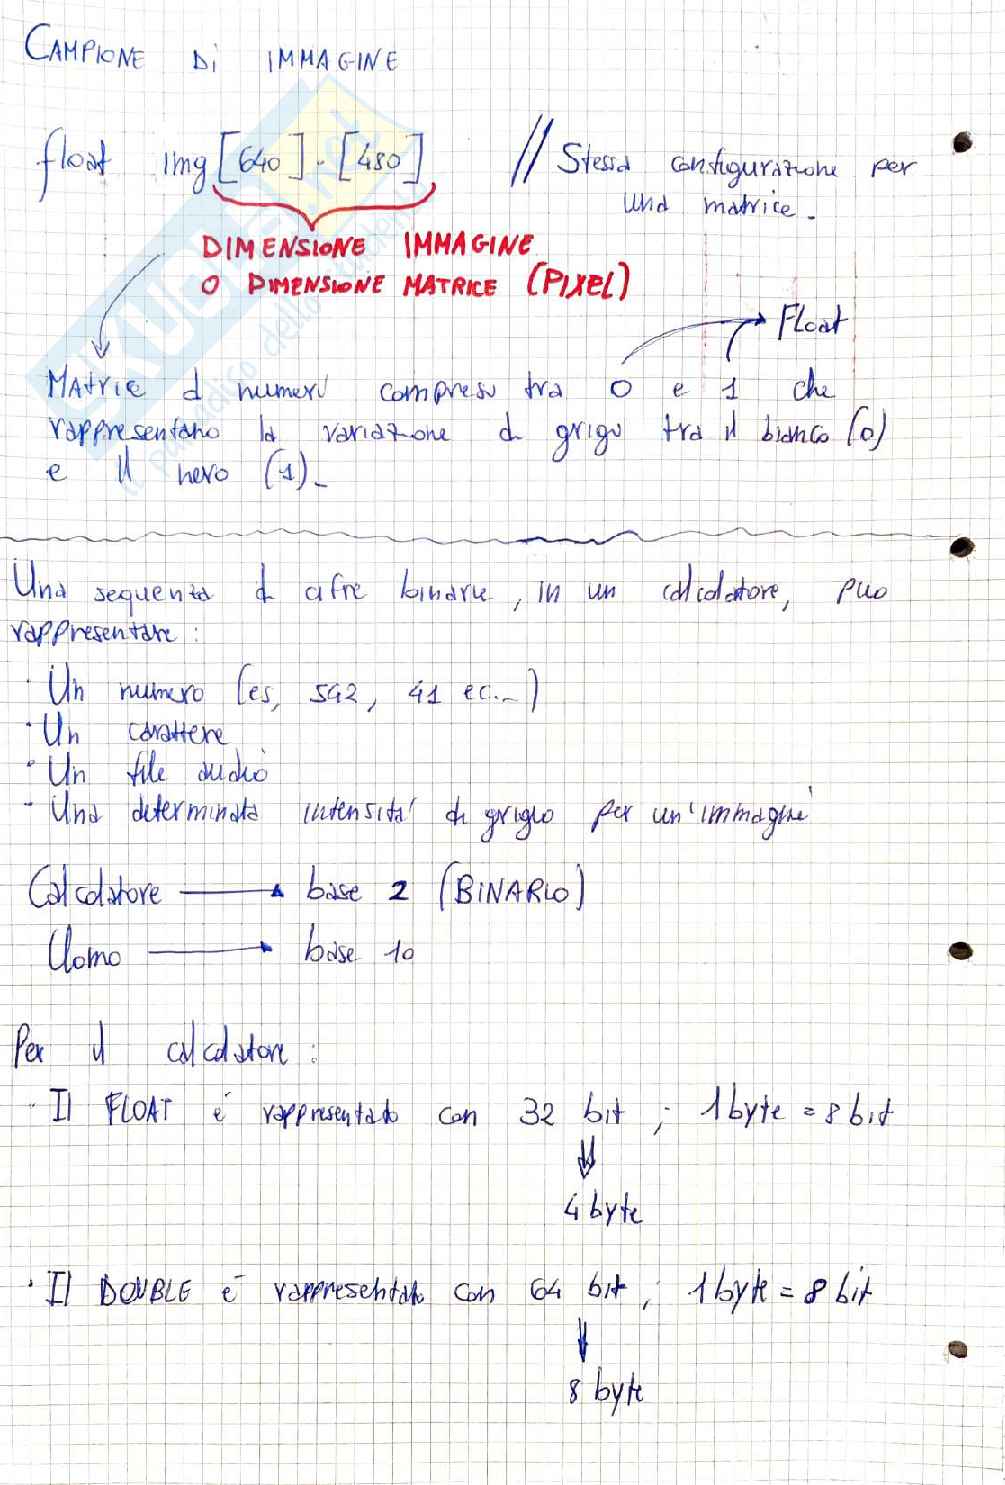 CAMPIONE Di IMMAGINE
float img[640]·[480] // Stessa configurazione per
una matrice.
DIMENSIONE IMMAGINE
O DIMENSIONE MATRICE (PIXEL)
Float
MAtrice di numeri compresi tra 0 e 1 che
rappresentano la variazione di grigio tra il bianco (0)
e il nero (1).
Una sequenza di cifre binarie, in un calcolatore, può
rappresentare:
· Un numero (es, 542, 41 ec..)
· Un carattere
· Un file audio
- Una determinata intensità di grigio per un'immagine
Calcolatore → base 2 (BINARIO)
Uomo → base 10
Per il calcolatore:
· Il FLOAT é rappresentato con 32 bit ; 1 byte = 8 bit
4 byte
· Il DOUBLE é rappresentato con 64 bit ; 1 byte = 8 bit
8 byte